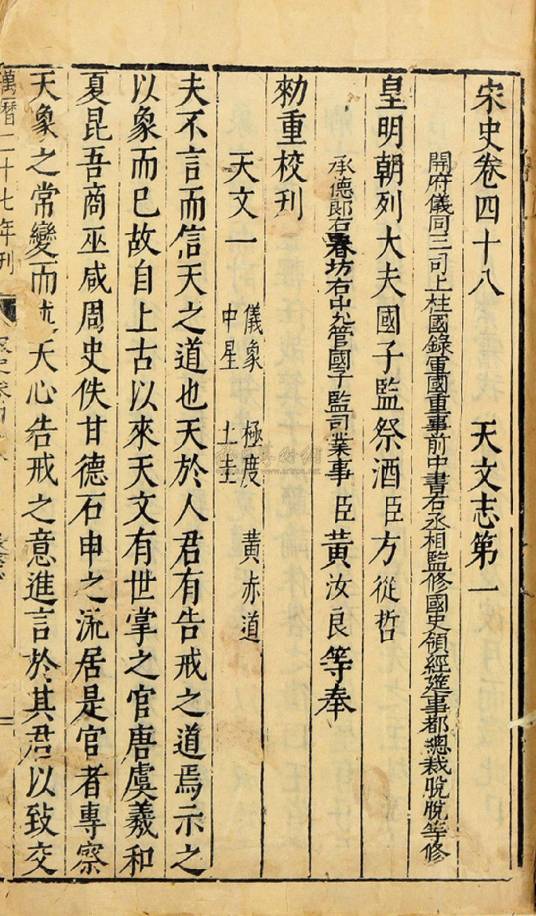 宋史卷四十八　天文志第一
開府儀同三司上柱國錄軍國重事前中書右丞相監修國史領經筵事都總裁脫脫等修
皇明朝列大夫國子監祭酒臣方從哲
承德郎右春坊右中允管國子監司業事臣黃汝良等奉
勑重校刊
天文一　儀象　極度　黃赤道
中星　土圭
夫不言而信天之道也天於人君有告戒之道焉示之
以象而已故自上古以來天文有世掌之官唐虞羲和
夏昆吾商巫咸周史佚甘德石申之流居是官者專察
天象之常變而述天心告戒之意進言於其君以致交
萬曆二十七年刊